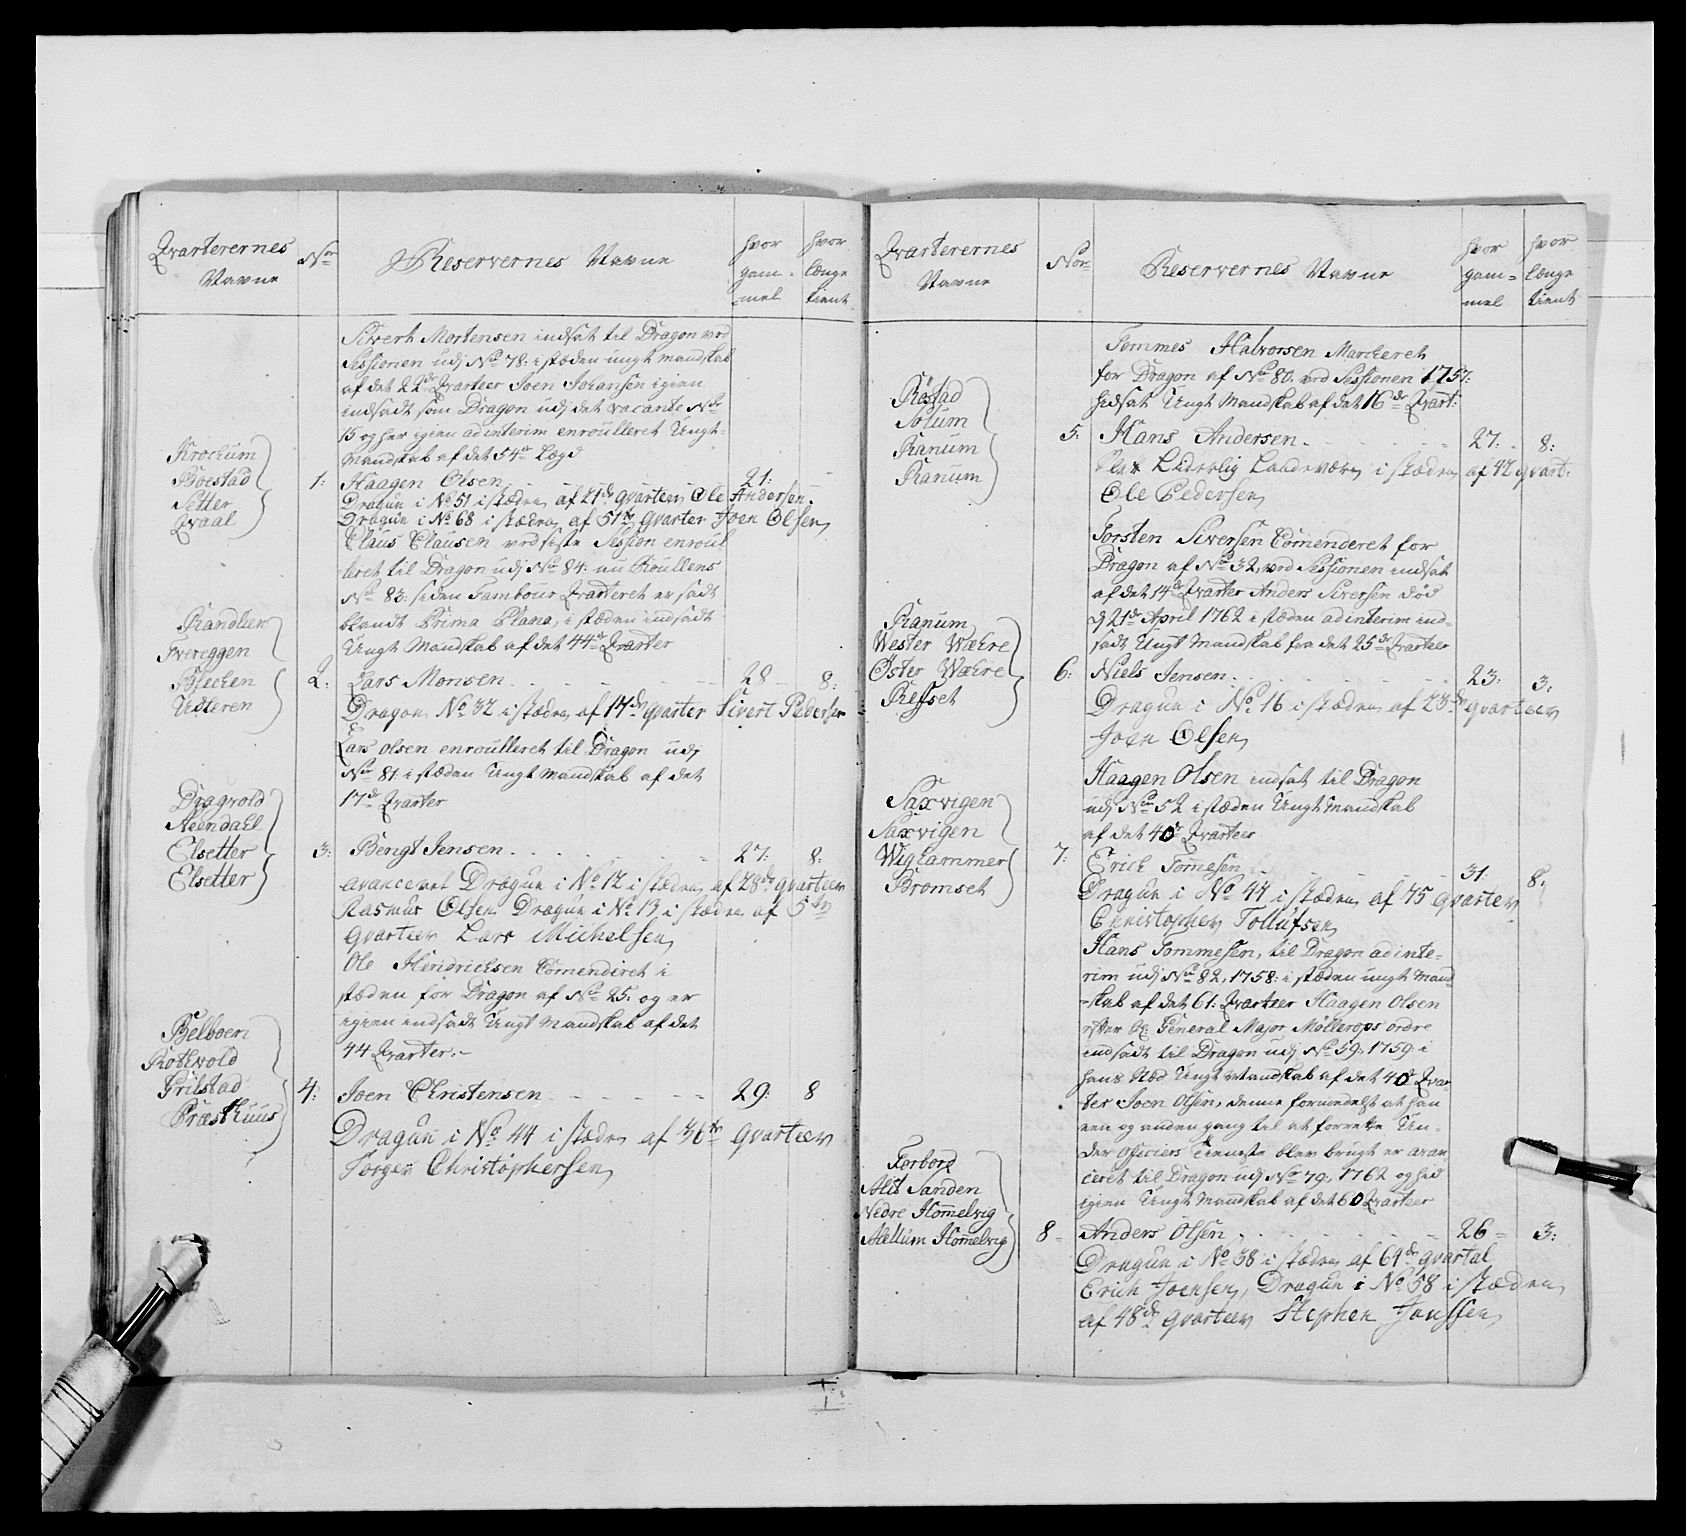 Qvarterernes
Navne
No
Reservernes Navne
hvor
gam-
mel
hvor
længe
tient
Sivert Mortensen indsat til Dragon ved
Sessionen udj No 78: i stæden ungt mandskab
af det 22de Qvarteer Joen Johansen igien
indsadt som Dragon udj det vacante No
15 og her igien ad interim enroulleret Ungt
Mandskab af det 54de Lægd
Krockum
Boestad
Setter
Qvaal
1: Haagen Olsen 21:
Dragun i No 51 i stæden af 21de qvarteer Ole Andersen.
Dragun i No 68 i stæden af 51te qvarter Joen Olsen
Claus Clausen ved siste Session enroul
leret til Dragon udj No 84: nu Roullens
No 83: siden Tambour Qvarteret er sadt
blandt Prima Plana, i stæden indsadt
Ungt Mandskab af det 44de Qvarter
Randlien
Tvereggen
Blecken
Udteren
2: Lars Monsen 28 8:
Dragon No 32 i stæden af 14de qvarter Sivert Pedersen
Lars Olsen enroulleret til Dragon udj
No 81 i stæden Ungt Mandskab af det
17de Qvarter
Dragvold
Neendahl
Elsetter
Elsetter
3: Bengt Jensen 27: 8:
avanceret Dragun i No 12 i stæden af 28de qvarteer
Rasmus Olsen Dragun i No 13 i stæden af 5te
qvarteer Lars Michelsen
Ole Hendrichsen Comenderet i
stæden for Dragon af No 25: og er
igien indsadt Ungt Mandskab af det
44 Qvarter:-
Belboen
Rothvold
Frilstad
Præsthuus
4: Joen Christensen 29: 8
Dragun i No 44 i stæden af 36te qvarteer
Torger Christophersen
Qvarterernes
Navne
Nor
Reservernes Navne
hvor
gam=
mel
hvor
længe
tient
Tommes Halvorsen Marcheret
for Dragon af No 80, ved Sessionen 1757:
hidsat Ungt Mandskab af det 16de Qvart:
Røstad
Solum
Ranum
Ranum
5: Hans Andersen 27. 8:
Liderlig Landeværn i stæden af 42 qvart:
Ole Pedersen
Torsten Siversen Comenderet for
Dragon af No 32, ved Sessionen indsat
af det 14de Qvarter Anders Siversen død
d 21de April 1762 i stæden ad interim ind-
sadt Ungt Mandskab fra det 25de Qvarteer
Ranum
Wester Wæhre
Öster Wæhre
Reffset
6: Niels Jensen 23: 3:
Dragun i No 16 i stæden af 23de qvarteer
Joen Olsen
Haagen Olsen indsat til Dragon
udj No 52 i stæden Ungt Mandskab
af det 40de Qvarteer
Saxvigen
Saxvigen
Wighammer
Bromset
7: Erich Tommesen 31. 8:
Dragun i No 44 i stæden af 45 qvarteer
Christopher Tollufsen
Hans Tommesen, til Dragon ad inte-
rim udj No 82, 1758: i stæden ungt Mand-
skab af det 61: Qvarteer Haagen Olsen
efter General Major Møllerops ordre
indsadt til Dragon udj No 59: 1759: i
hans stæd Ungt Mandskab af det 40de Qvar
ter Joen Olsen, denne formedelst at han
een og anden gang til at forrette Un-
der Officiers tieneste blev brugt er avan-
ceret til Dragon udj No 79, 1762 og hid
igien Ungt Mandskab af det 60 Qvarteer
Forborg
Alit Sanden
Nedre Hommelvig
Mellum Hommelvig
8 Anders Olsen 26 3:
Dragun i No 38 i stæden af 64de qvartal
Erich Joensen, Dragun i No 58 i stæden
af 48de qvarteer Stephen Jonssen